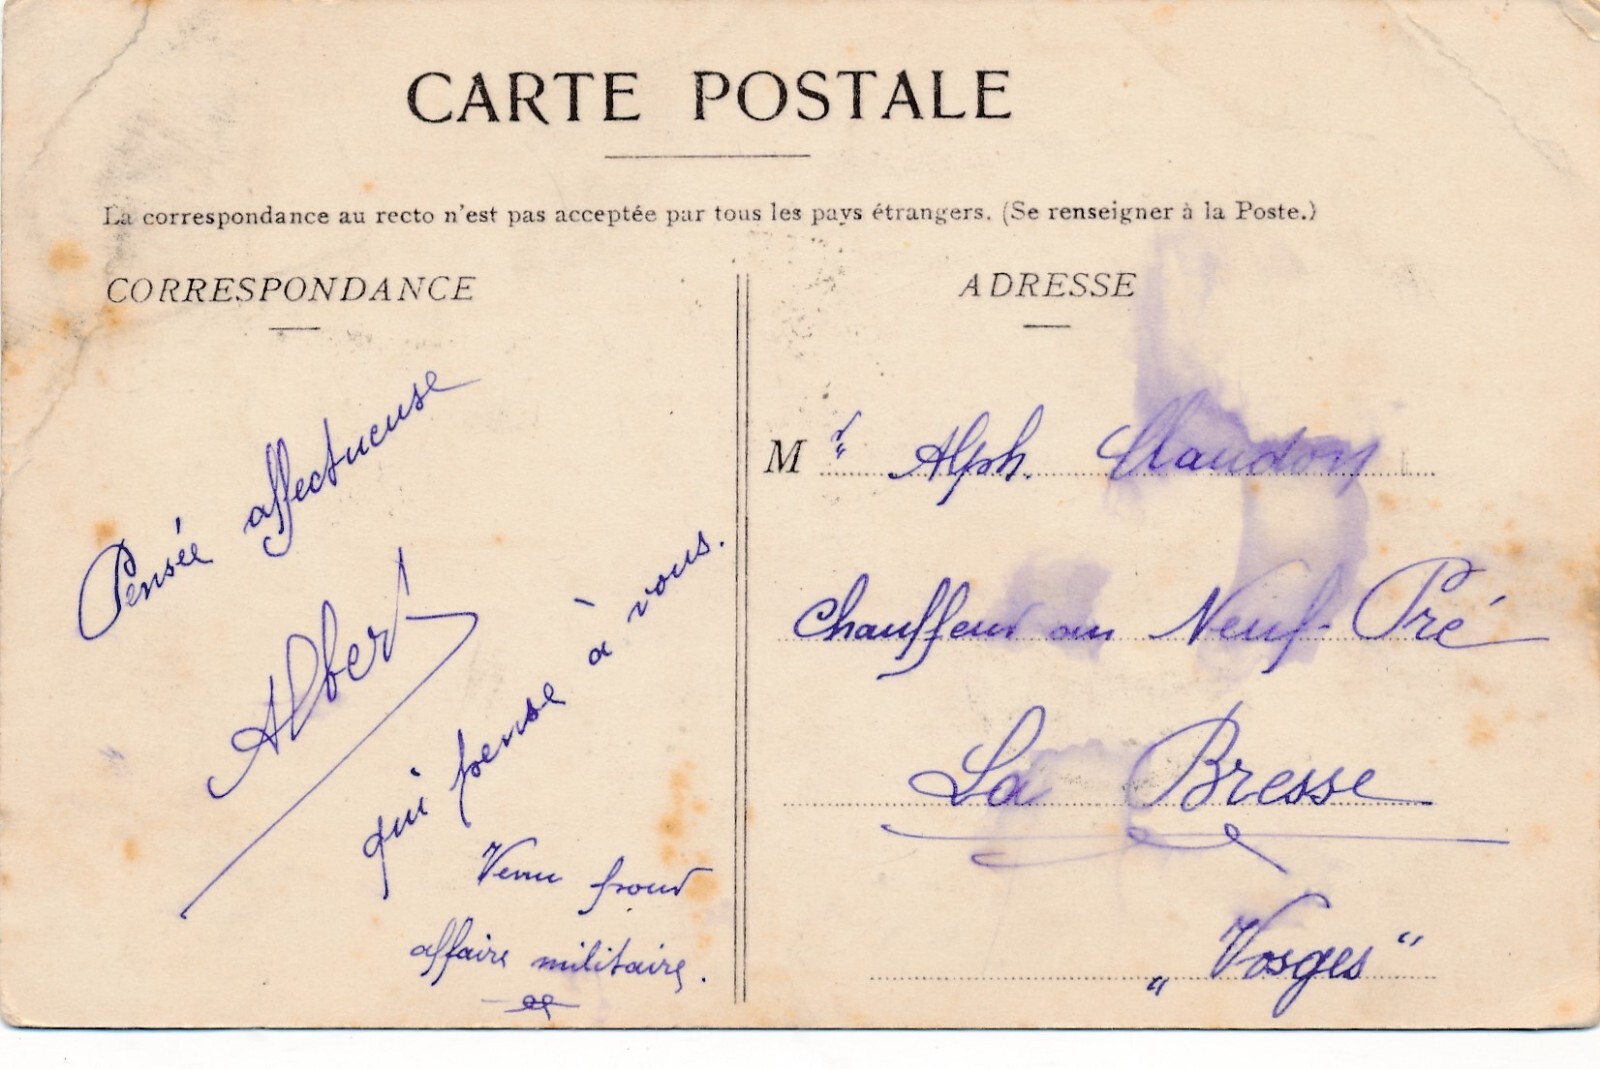 CARTE POSTALE
La correspondance au recto n'est pas acceptée par tous les pays étrangers. (Se renseigner à la Poste.)
CORRESPONDANCE
Pensée affectueuse
Albert
qui pense à vous.
Venu pour
affaire militaire.
ADRESSE
Mr Alph. Claudon
Chauffeur au Neuf-Pré
La Bresse
„Vosges“